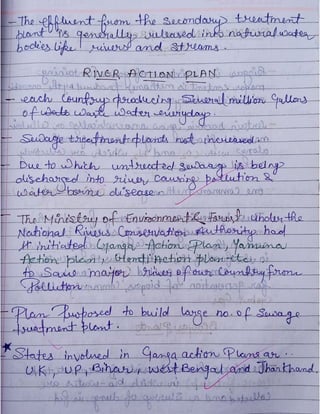 - The effluent from the secondary treatment
plant is generally released into natural water
bodies like rivers and streams.
RIVER ACTION PLAN
- each Country producing Several million gallons
of waste water everyday.
- Sewage treatment plants not increased
- Due to which untreated sewage is being
discharged into river, causing pollution &
water borne disease.
- The Ministry of Environment & Forest under the
National Rivers Conservation Authority had
initiated Ganga Action Plan, Yamuna
Action plan, etc
to Save major rivers of our Country from
Pollution
- Plan Proposed to build large no. of Sewage
treatment plant.
* States involved in Ganga action Plans are..
UK, UP, Bihar, West Bengal and Jharkhand.